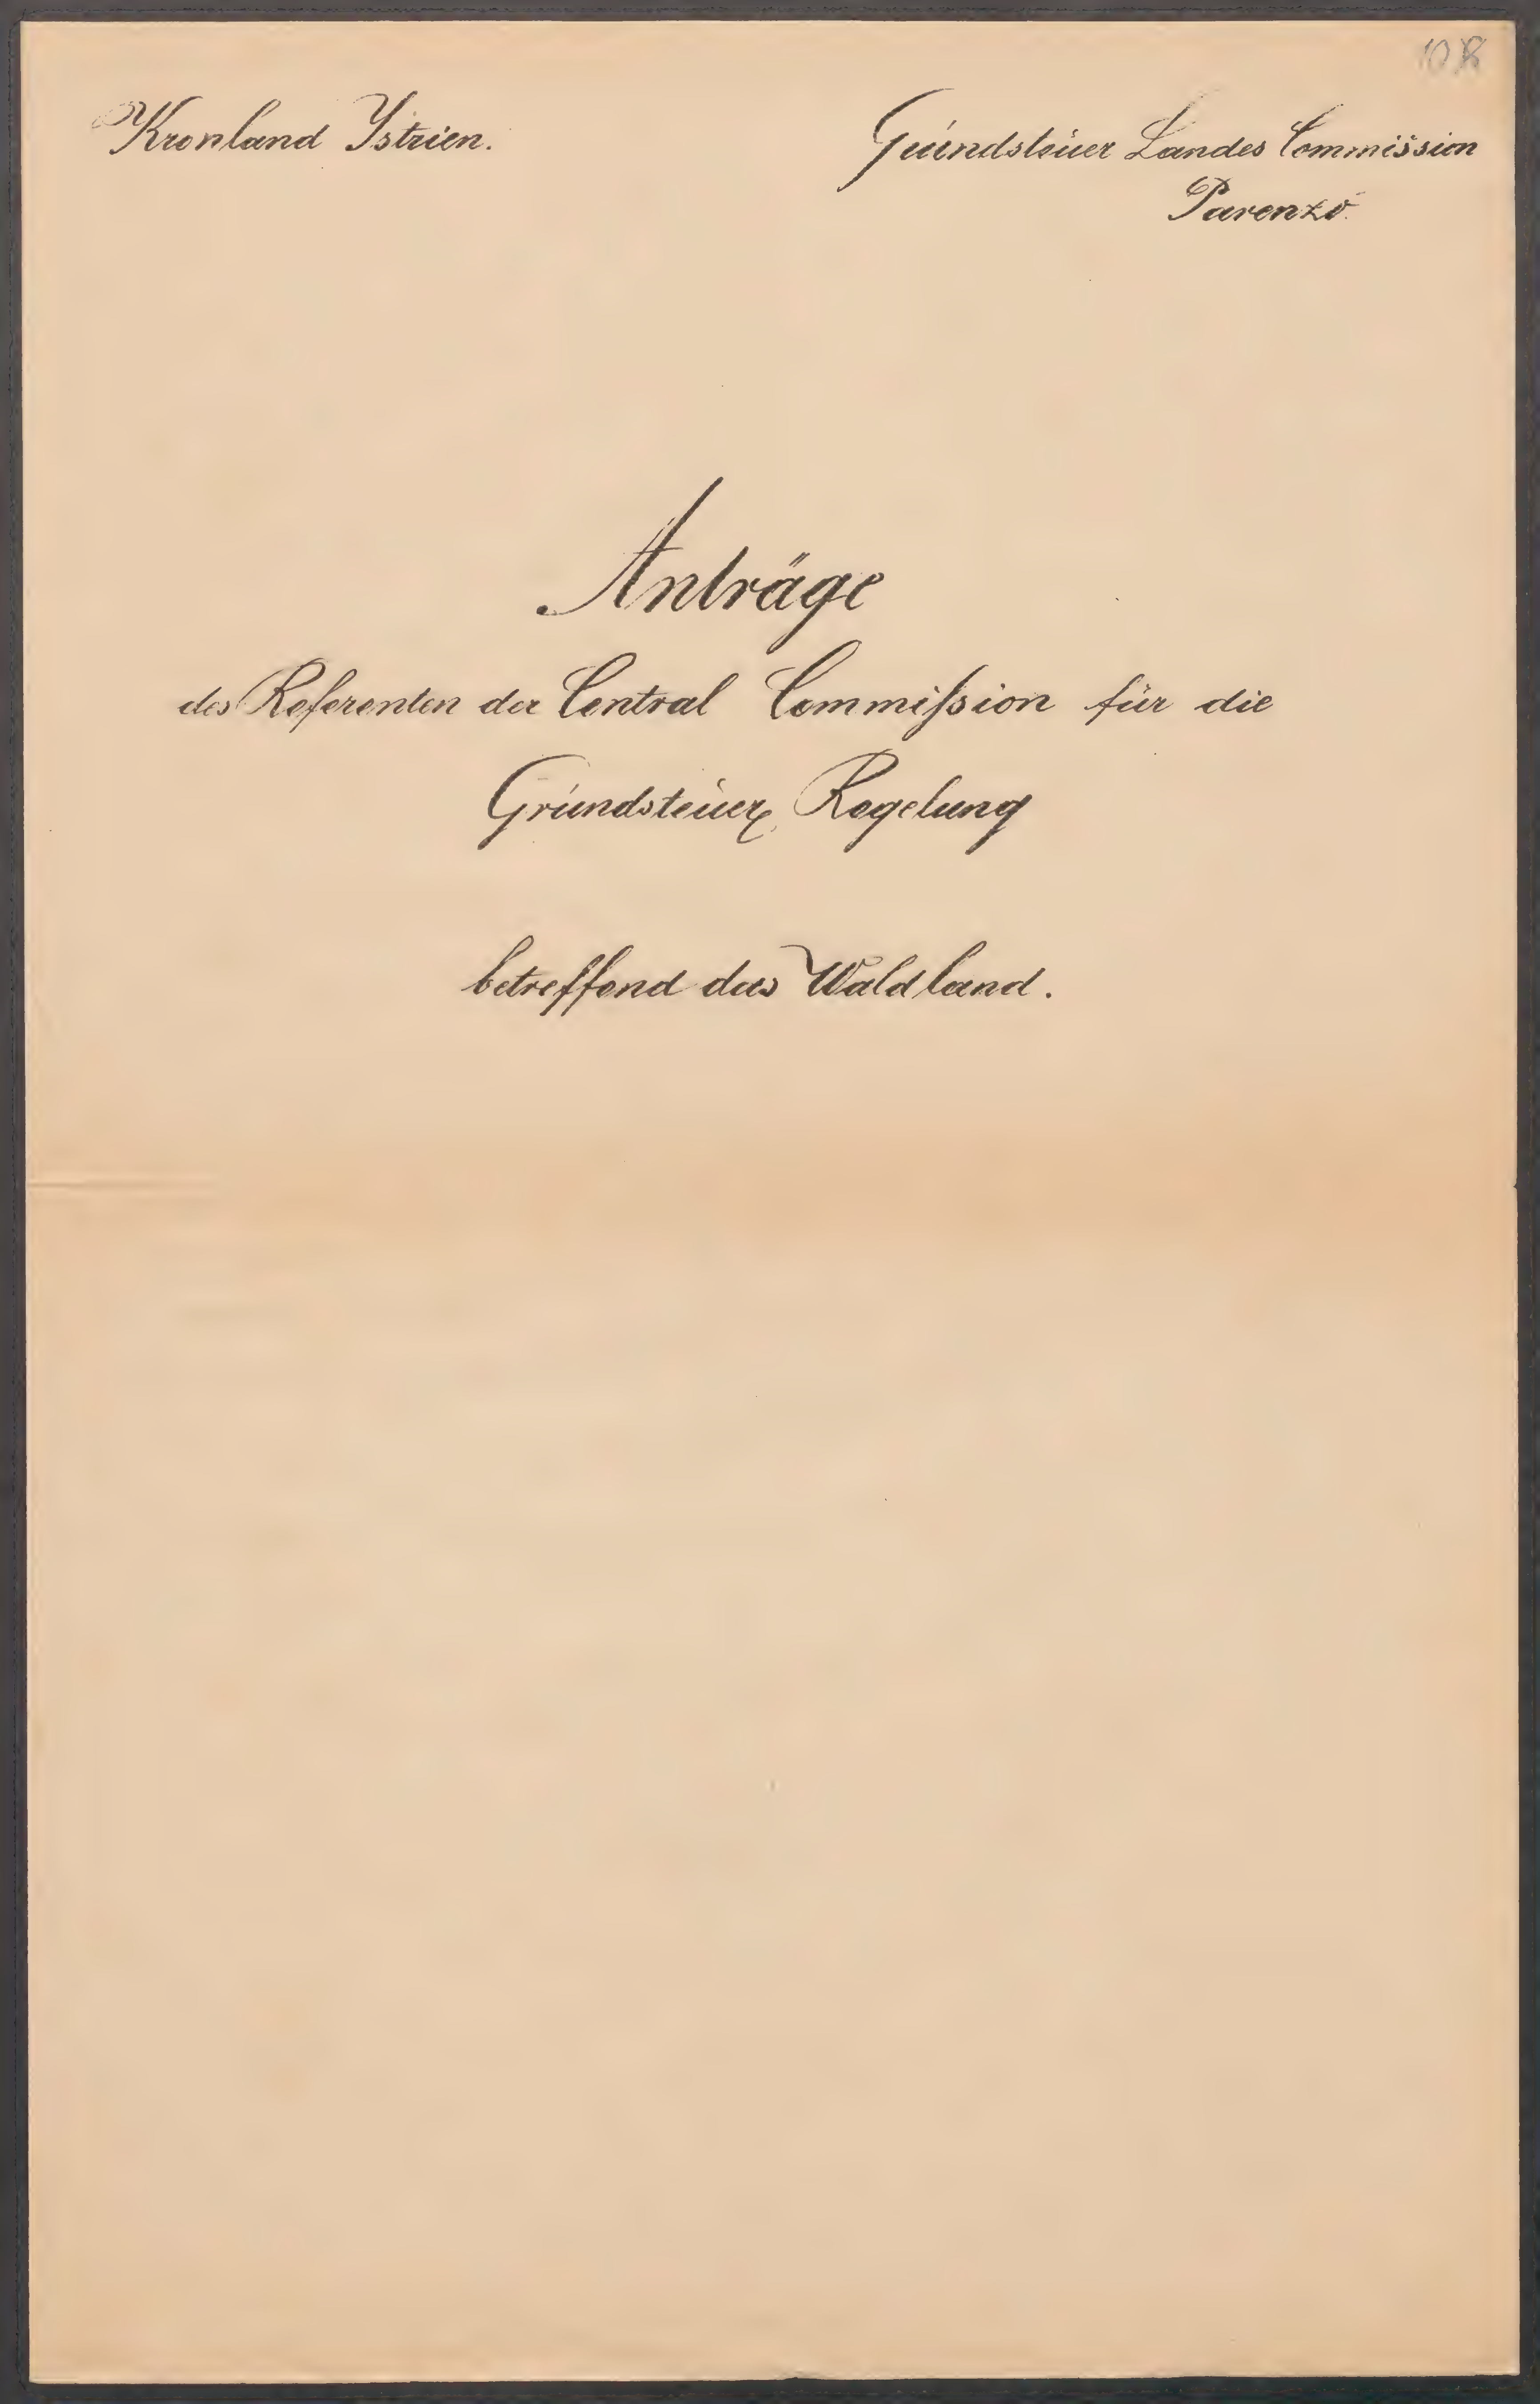 Kronland Ystrien.
Grundsteuer Landes Commission
Parenzo.
Anträge
des Referenten der Central Commission für die
Grundsteuer Regelung
betreffend das Waldland.